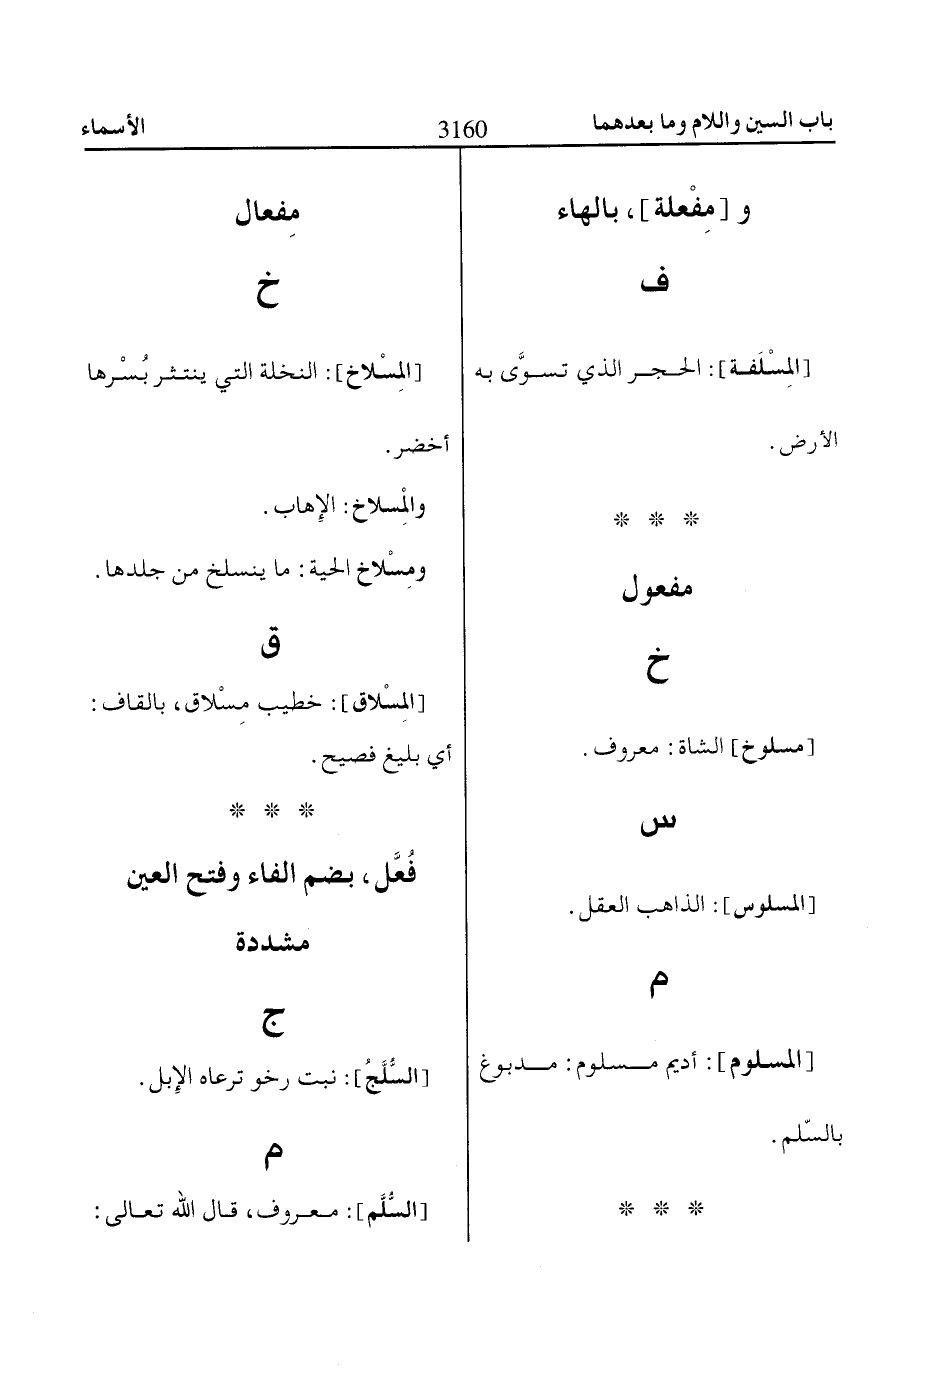 باب السين واللام وما بعدهما
3160
الأسماء
و [مِفْعلة]، بالهاء
ف
[المِسْلَفـة]: الحـجـر الذي تـسـوَّى بـه
الأرض.
* * *
مفعول
خ
[مسلوخ] الشاة: معروف.
س
[المسلوس]: الذاهب العقل.
م
[المسلوم]: أديم مـسـلوم: مـدبـوغ
بالسّلم.
* * *
مِفعال
خ
[المِسْلاخ]: النخلة التي ينتـثـر بُسْـرها
أخضر.
والمِسْلاخ: الإهاب.
ومِسْلاخ الحية: ما ينسلخ من جلدها.
ق
[المِسْلاق]: خطيب مِسْلاق، بالقاف:
أي بليغ فصيح.
* * *
فُعَّل، بضم الفاء وفتح العين
مشددة
ج
[السُّلَّجُ]: نبت رخو ترعاه الإبل.
م
[السُّلَّم]: مـعـروف، قـال الله تـعـالى: